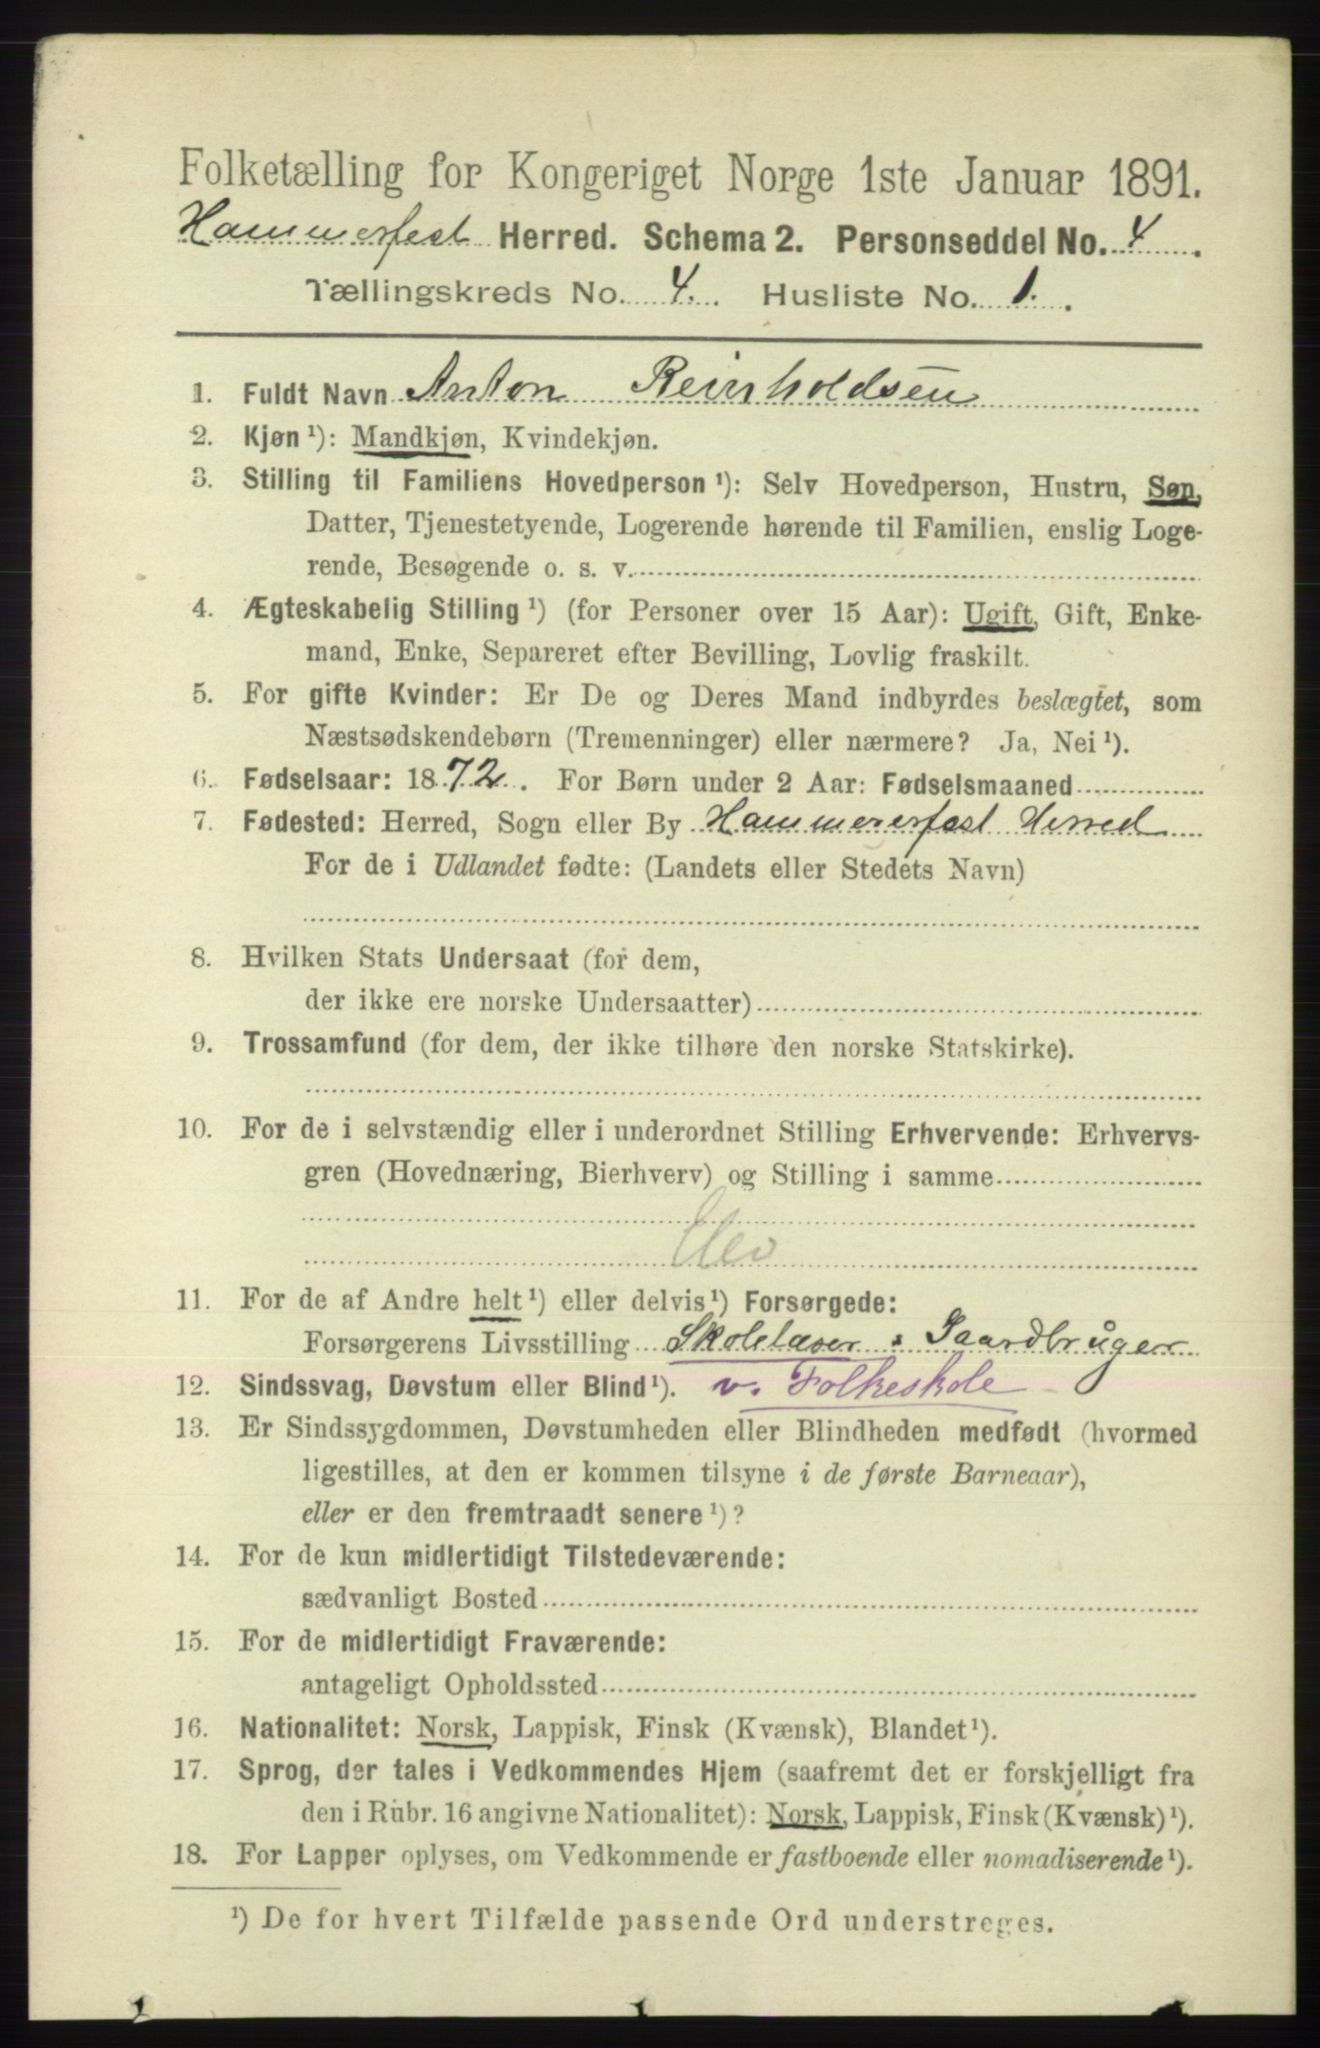 Folketælling for Kongeriget Norge 1ste Januar 1891.
Hammerfest Herred. Schema 2. Personseddel No. 4.
Tællingskreds No. 4. Husliste No. 1.
1. Fuldt Navn Anton Reinholdsen
2. Kjøn¹): Mandkjøn, Kvindekjøn.
3. Stilling til Familiens Hovedperson¹): Selv Hovedperson, Hustru, Søn,
Datter, Tjenestetyende, Logerende hørende til Familien, enslig Loge-
rende, Besøgende o. s. v.
4. Ægteskabelig Stilling¹) (for Personer over 15 Aar): Ugift, Gift, Enke-
mand, Enke, Separeret efter Bevilling, Lovlig fraskilt.
5. For gifte Kvinder: Er De og Deres Mand indbyrdes beslægtet, som
Næstsødskendebørn (Tremenninger) eller nærmere? Ja, Nei¹).
6. Fødselsaar: 1872. For Børn under 2 Aar: Fødselsmaaned
7. Fødested: Herred, Sogn eller By Hammererfest Herred
For de i Udlandet fødte: (Landets eller Stedets Navn)
8. Hvilken Stats Undersaat (for dem,
der ikke ere norske Undersaatter)
9. Trossamfund (for dem, der ikke tilhøre den norske Statskirke).
10. For de i selvstændig eller i underordnet Stilling Erhvervende: Erhvervs-
gren (Hovednæring, Bierhverv) og Stilling i samme
Elev
11. For de af Andre helt¹) eller delvis¹) Forsørgede:
Forsørgerens Livsstilling Skolelærer Gaardbruger
12. Sindssvag, Døvstum eller Blind¹). v. Folkeskole
13. Er Sindssygdommen, Døvstumheden eller Blindheden medfødt (hvormed
ligestilles, at den er kommen tilsyne i de første Barneaar),
eller er den fremtraadt senere¹)?
14. For de kun midlertidigt Tilstedeværende:
sædvanligt Bosted
15. For de midlertidigt Fraværende:
antageligt Opholdssted
16. Nationalitet: Norsk, Lappisk, Finsk (Kvænsk), Blandet¹).
17. Sprog, der tales i Vedkommendes Hjem (saafremt det er forskjelligt fra
den i Rubr. 16 angivne Nationalitet): Norsk, Lappisk, Finsk (Kvænsk)¹).
18. For Lapper oplyses, om Vedkommende er fastboende eller nomadiserende¹).
¹) De for hvert Tilfælde passende Ord understreges.